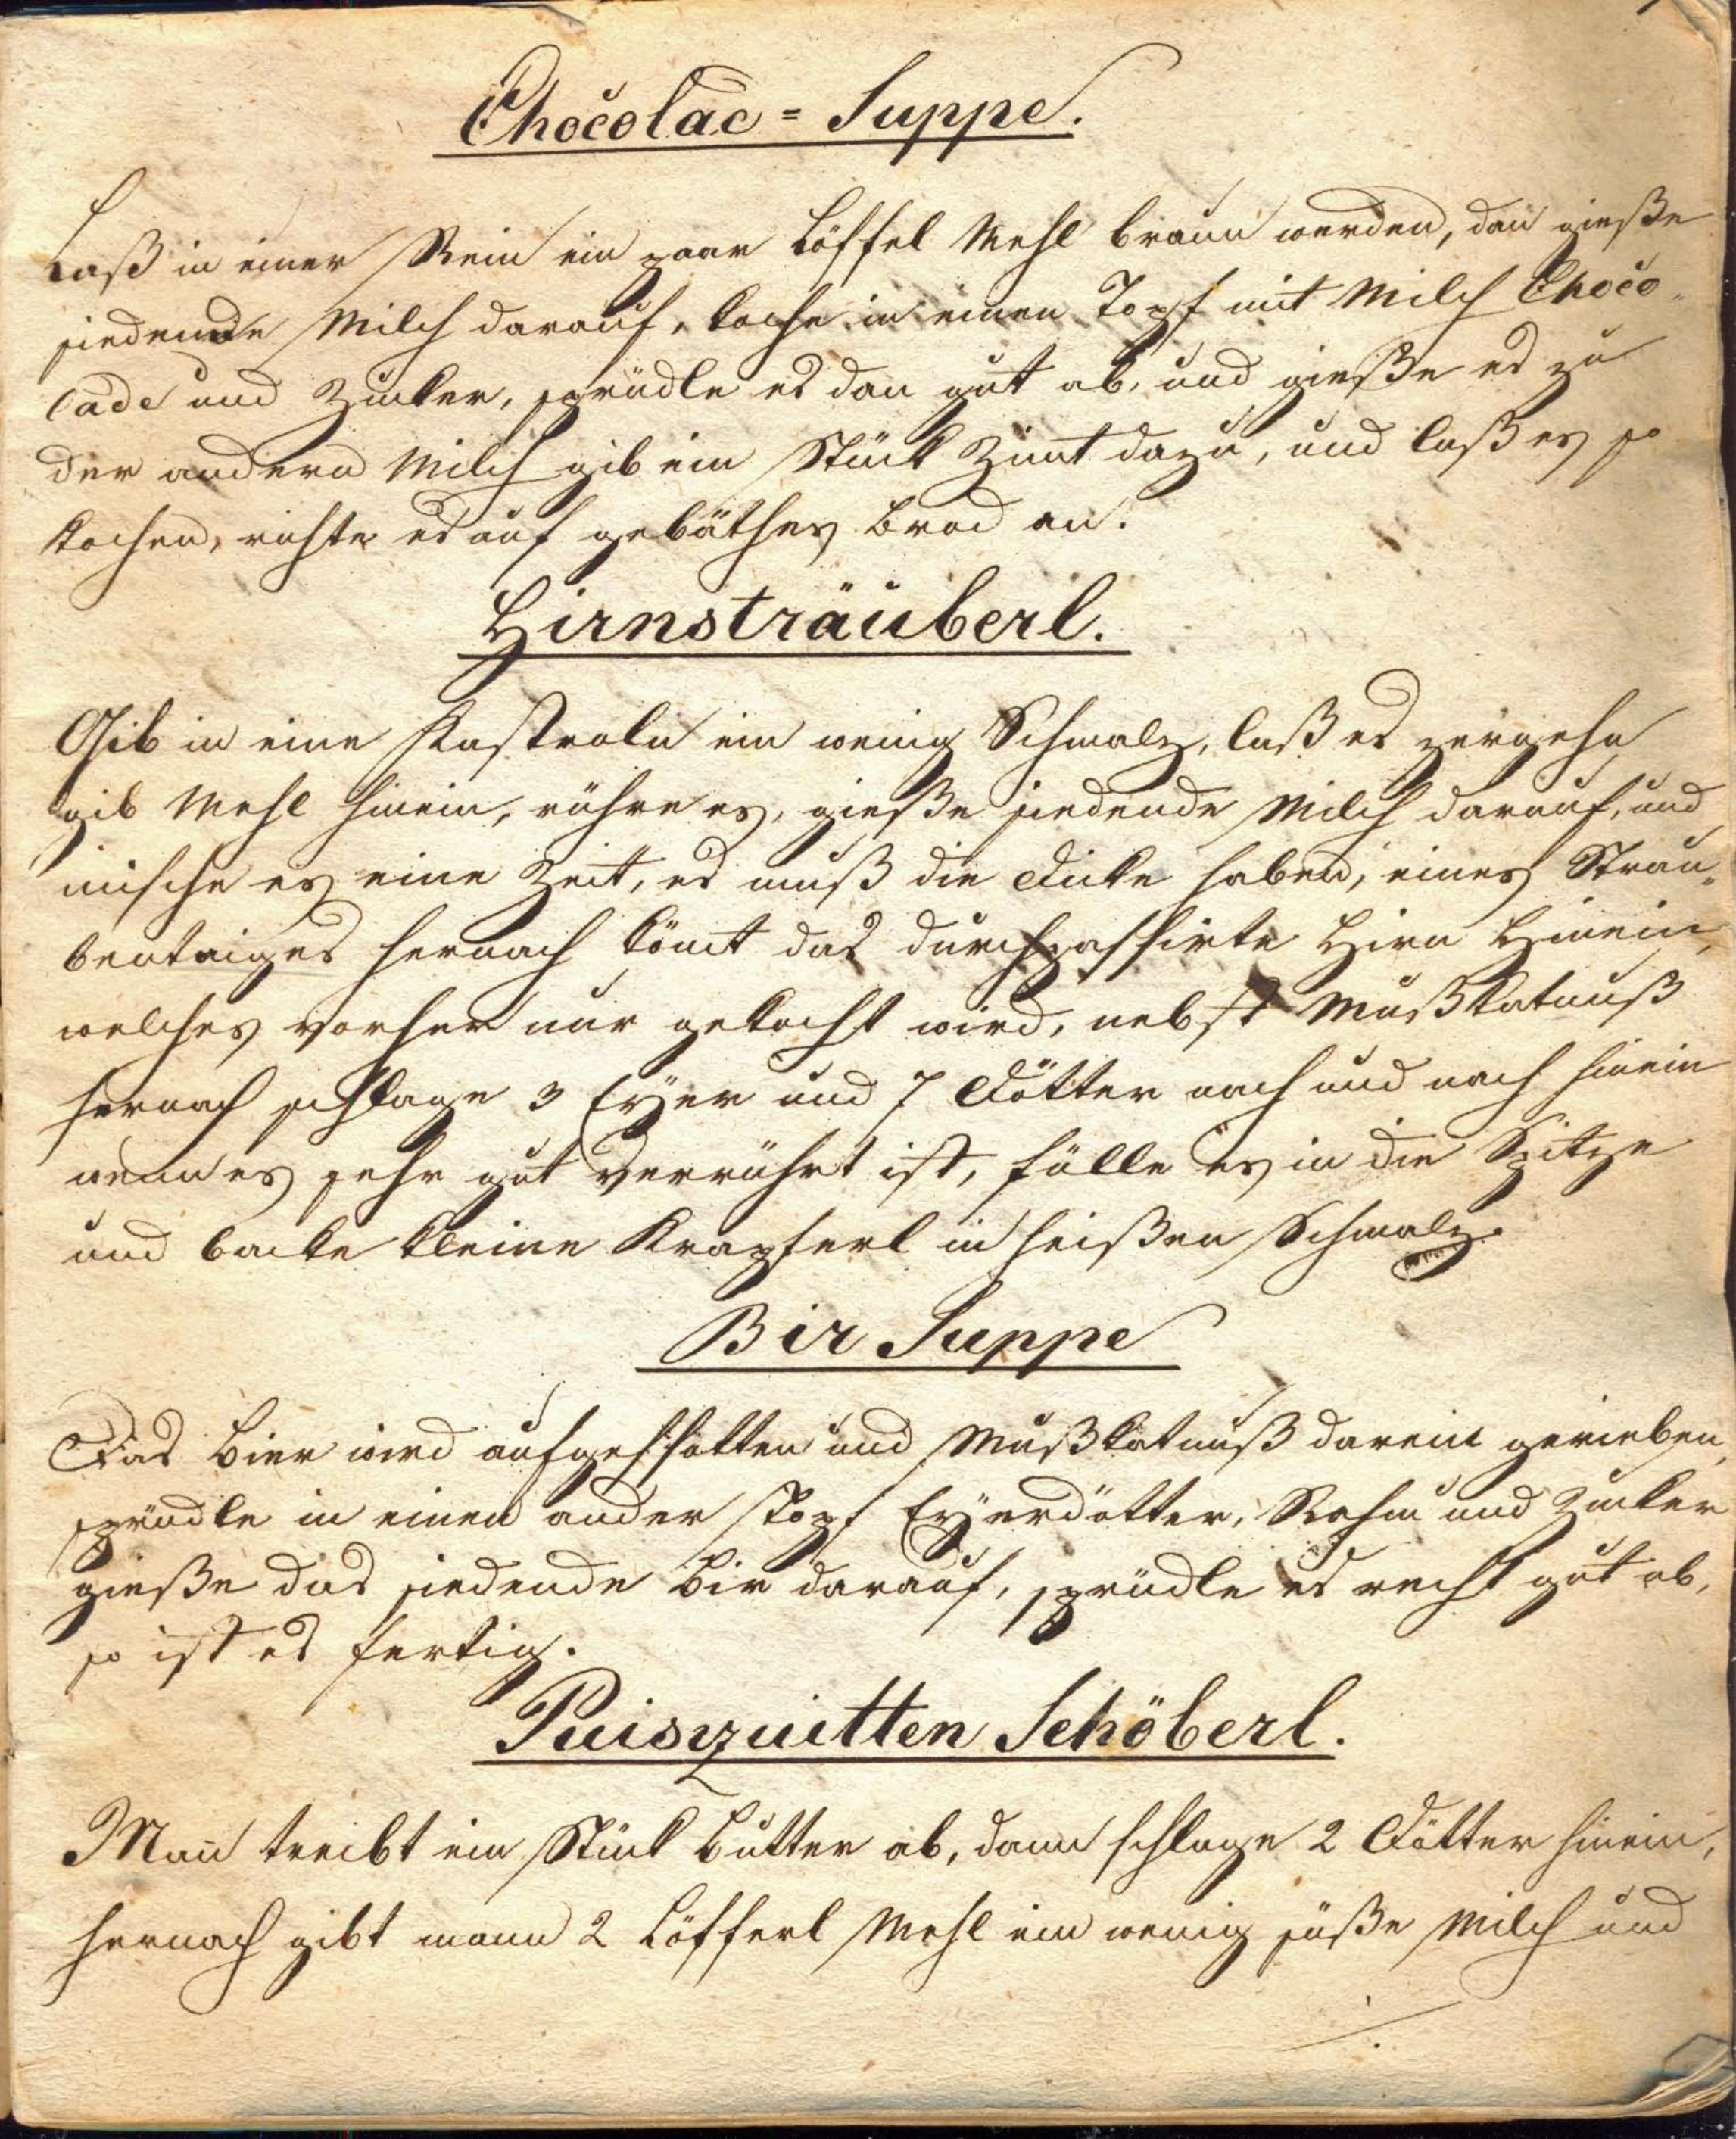 Chocolac = Suppe.
Laß in einer Rein ein paar Löffel Mehl braun werden, dan gieße
siedende Milch darauf, koche in einen Topf mit Milch Choco-
lade und Zucker, sprüdle es dan gut ab, und gieße es zu
der andern Milch gib ein Stück Zimt dazu, und laß es so
kochen, richte es auf gebäthes Brod an.
Hirnsträuberl.
Gib in eine Kastroln ein wenig Schmalz, laß es zergehn
gib Mehl hinein, rühre es, gieße siedende Milch darauf, und
mische es eine Zeit, es muß die Dicke haben, eines Strau-
bentaiges hernach kömt das durchpassirte Hirn Hinein,
welches vorher nur gekocht wird, nebst Mußkatnuß
hernach schlage 3 Eÿer und 7 Dötter nach und nach hinein
wenn es sehr gut verrührt ist, fülle es in die Spitze
und backe kleine Krapferl in heißen Schmalz.
Bir Suppe
Das Bier wird aufgesotten und Mußkatnuß darein gerieben,
sprüdle in einen ander Topf Eÿerdötter, Rahm und Zucker
gieße das siedende Bir darauf, sprüdle es recht gut ab,
so ist es fertig.
Puisquitten Schöberl.
Man̄ treibt ein Stück Butter ab, dann schlage 2 Dötter hinein,
hernach gibt mann 2 Löfferl Mehl ein wenig süße Milch und